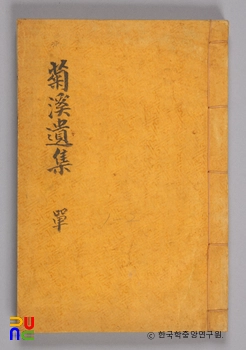 菊溪遺集
單
© 한국학중앙연구원